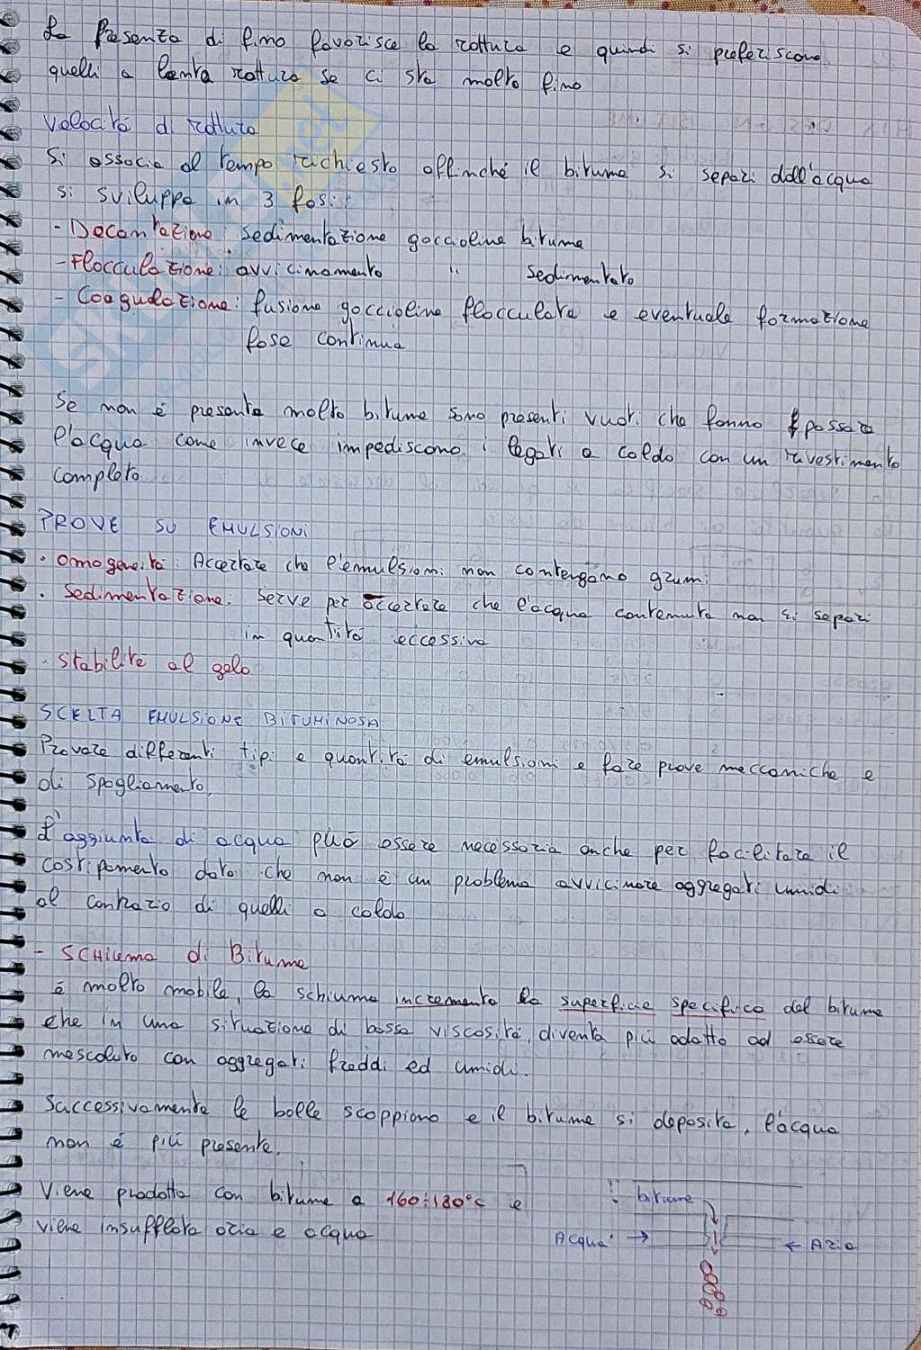 La Presenza di fino favorisce la rottura e quindi si preferiscono
quelli a lenta rottura se ci sta molto fino
Velocità di rottura
Si associa al tempo richiesto affinché il bitume si separi dall'acqua
si sviluppa in 3 fasi:
- Decantazione: sedimentazione goccioline bitume
- Flocculazione: avvicinamento " sedimentate
- Coagulazione: fusione goccioline flocculate e eventuale formazione
fase continua
Se non è presente molto bitume sono presenti vuoti che fanno passare
l'acqua come invece impediscono i legati a caldo con un rivestimento
completo
PROVE SU EMULSIONI
· Omogeneità: Accertare che l'emulsioni non contengano grumi
· Sedimentazione: Serve per accertare che l'acqua contenuta non si separi
in quantità eccessiva
· Stabilità al gelo
SCELTA EMULSIONE BITUMINOSA
Provare differenti tipi e quantità di emulsioni e fare prove meccaniche e
di spogliamento.
L'aggiunta di acqua può essere necessaria anche per facilitare il
costipamento dato che non è un problema avvicinare aggregati umidi
al contrario di quelli a caldo
- SCHIUMA di Bitume
è molto mobile, la schiuma incrementa la superficie specifica del bitume
che in una situazione di bassa viscosità, diventa più adatto ad essere
mescolato con aggregati freddi ed umidi.
Successivamente le bolle scoppiano e il bitume si deposita, l'acqua
non è più presente.
Viene prodotta con bitume a 160÷180°C e
viene insufflata aria e acqua
bitume
Acqua →
← Aria